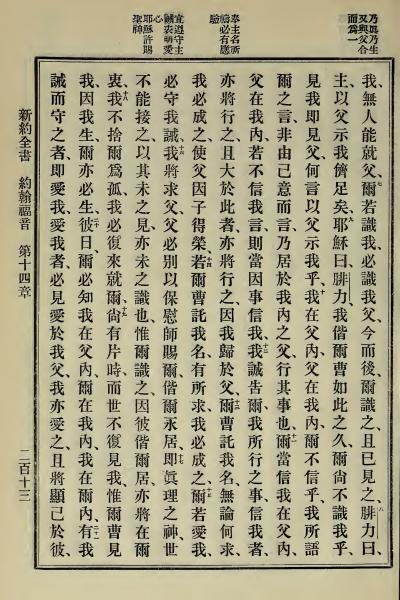 乃眞乃生
又與父合
而爲一
奉主名所
禱必有應
驗
宜遵守主
誡表明愛
心
耶穌許賜
聖神
我、無人能就父、七爾若識我、必識我父、今而後、爾識之、且已見之、八腓力曰、
主、以父示我儕足矣、九耶穌曰、腓力、我偕爾曹如此之久、爾尙不識我乎、
見我、卽見父、何言以父示我乎、十我在父內、父在我內、爾不信乎、我所語
爾之言、非由己意而言、乃居於我內之父、行其事也、十一爾當信我在父內、
父在我內、若不信我言、則當因事信我、十二我誠告爾、我所行之事、信我者
亦將行之、且大於此者、亦將行之、因我歸於父、十三爾曹託我名、無論何求、
我必成之、使父因子得榮、十四若爾曹託我名有所求、我必成之、十五爾若愛我、
必守我誡、十六我將求父、父必別以保慰師賜爾、偕爾永居、十七卽眞理之神、世
不能接之、以其未之見、亦未之識也、惟爾識之、因彼偕爾居、亦將在爾
衷、十八我不捨爾爲孤、我必復來就爾、十九尙有片時、而世不復見我、惟爾曹見
我、因我生、爾亦必生、二十彼日、爾必知我在父內、爾在我內、我在爾內、二十一有我
誡而守之者、卽愛我、愛我者、必見愛於我父、我亦愛之、且將顯己於彼、
新約全書 約翰福音 第十四章 二百十三